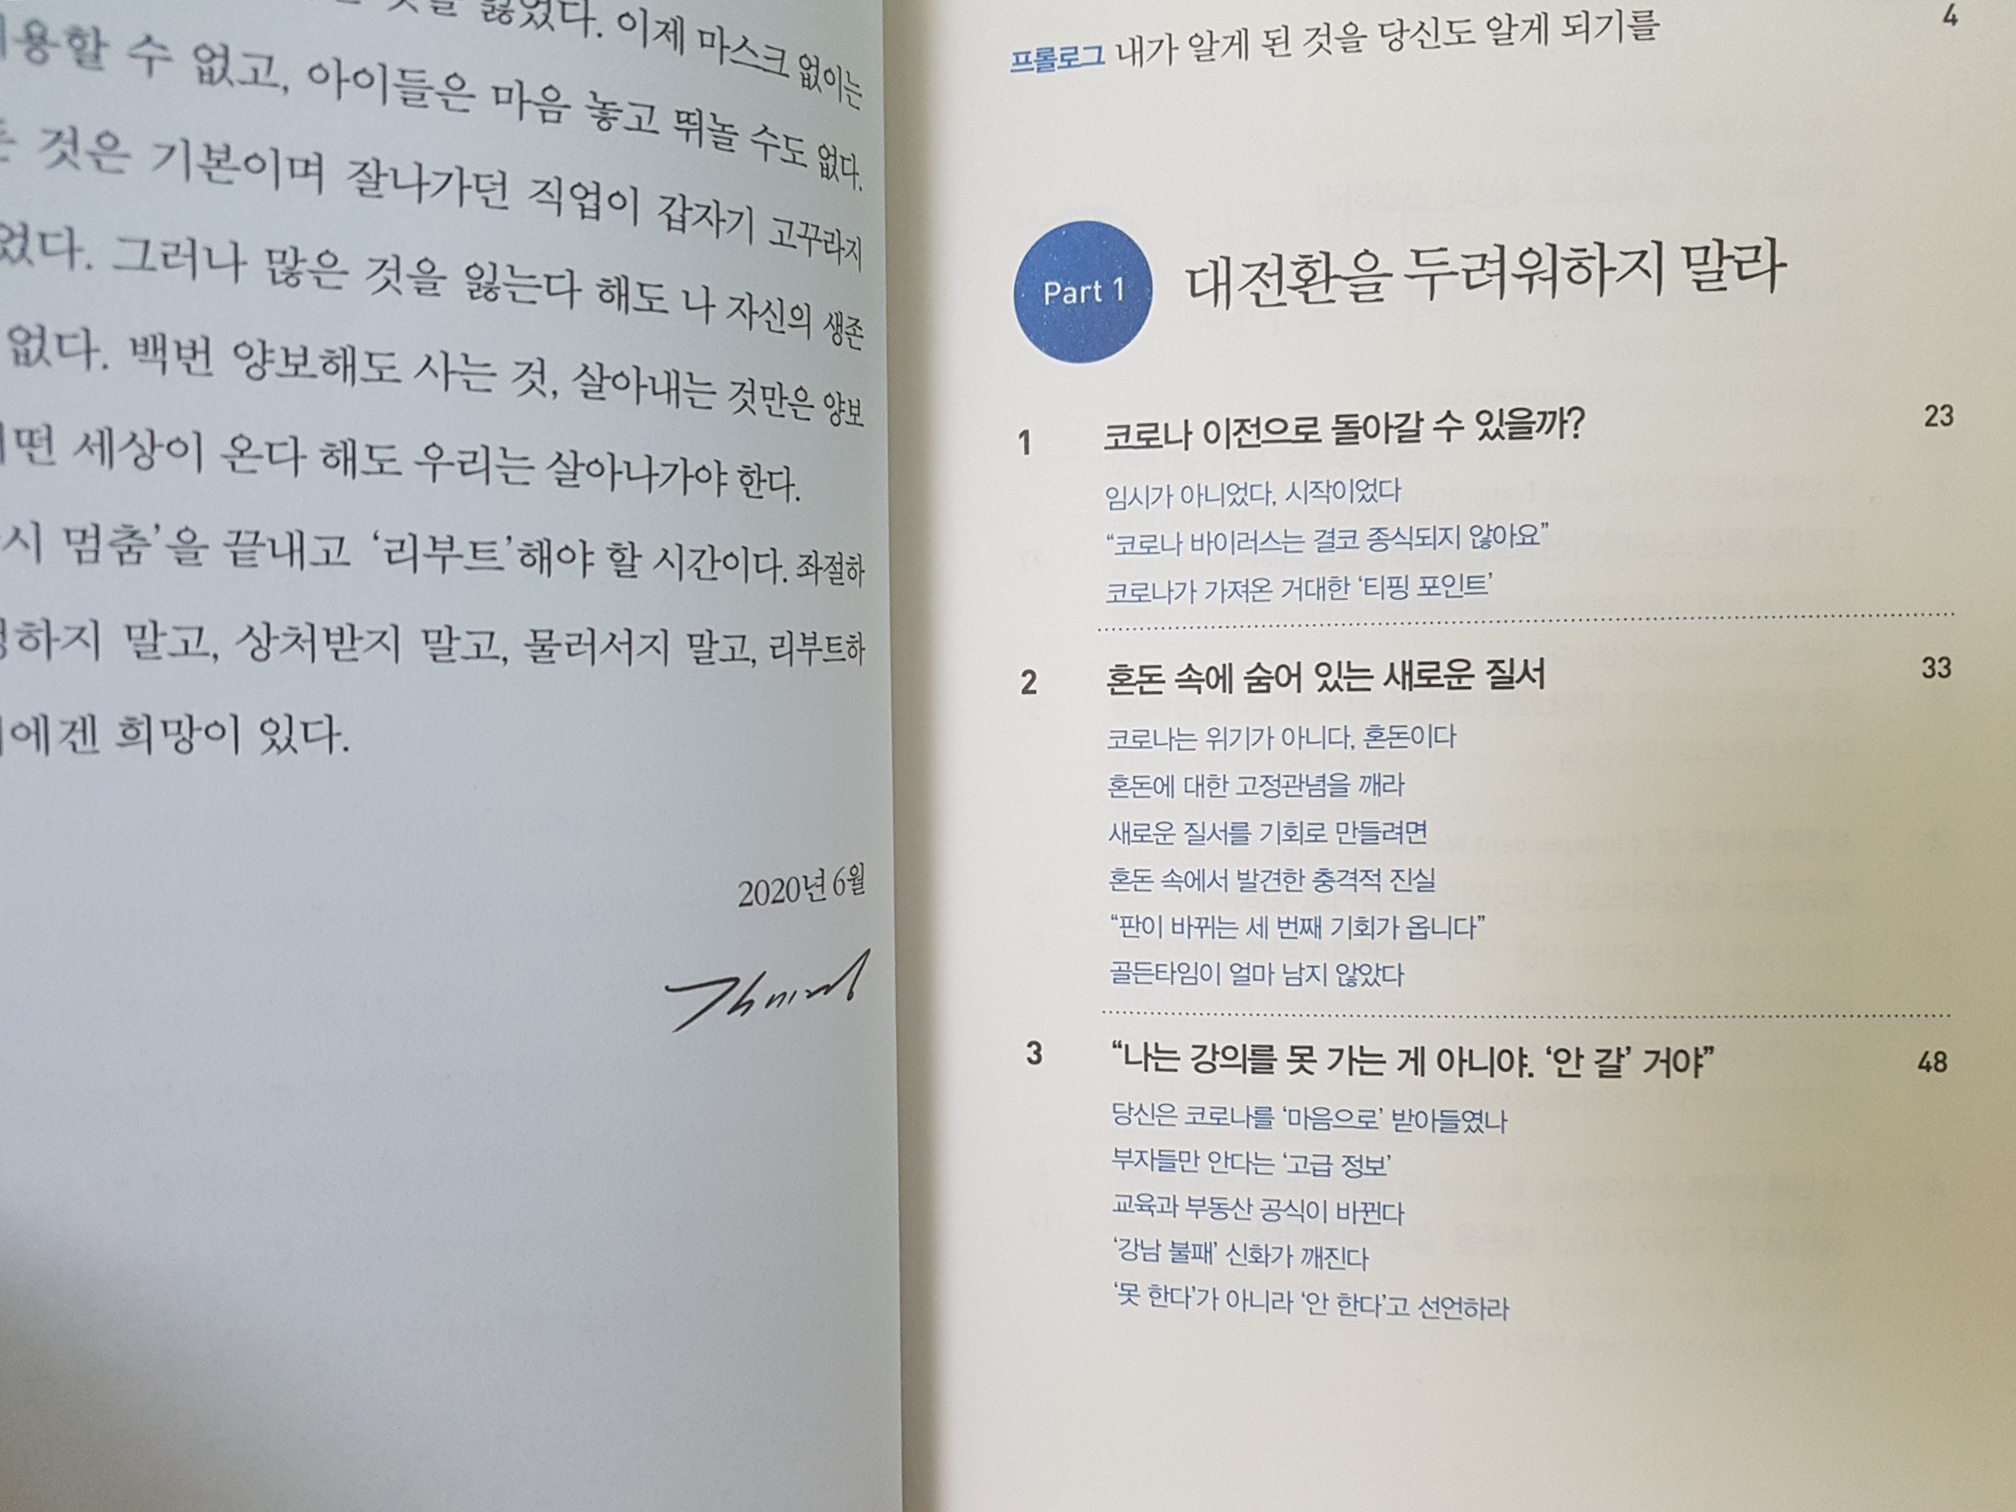 것을 잃었다. 이제 마스크 없이는
용할 수 없고, 아이들은 마음 놓고 뛰놀 수도 없다.
것은 기본이며 잘나가던 직업이 갑자기 고꾸라지
었다. 그러나 많은 것을 잃는다 해도 나 자신의 생존
없다. 백번 양보해도 사는 것, 살아내는 것만은 양보
떤 세상이 온다 해도 우리는 살아나가야 한다.
시 멈춤’을 끝내고 ‘리부트’해야 할 시간이다. 좌절하
하지 말고, 상처받지 말고, 물러서지 말고, 리부트하
에겐 희망이 있다.
2020년 6월
프롤로그 내가 알게 된 것을 당신도 알게 되기를 4
Part 1 대전환을 두려워하지 말라
1 코로나 이전으로 돌아갈 수 있을까? 23
임시가 아니었다, 시작이었다
“코로나 바이러스는 결코 종식되지 않아요”
코로나가 가져온 거대한 ‘티핑 포인트’
2 혼돈 속에 숨어 있는 새로운 질서 33
코로나는 위기가 아니다, 혼돈이다
혼돈에 대한 고정관념을 깨라
새로운 질서를 기회로 만들려면
혼돈 속에서 발견한 충격적 진실
“판이 바뀌는 세 번째 기회가 옵니다”
골든타임이 얼마 남지 않았다
3 “나는 강의를 못 가는 게 아니야. ‘안 갈’ 거야” 48
당신은 코로나를 ‘마음으로’ 받아들였나
부자들만 안다는 ‘고급 정보’
교육과 부동산 공식이 바뀐다
‘강남 불패’ 신화가 깨진다
‘못 한다’가 아니라 ‘안 한다’고 선언하라